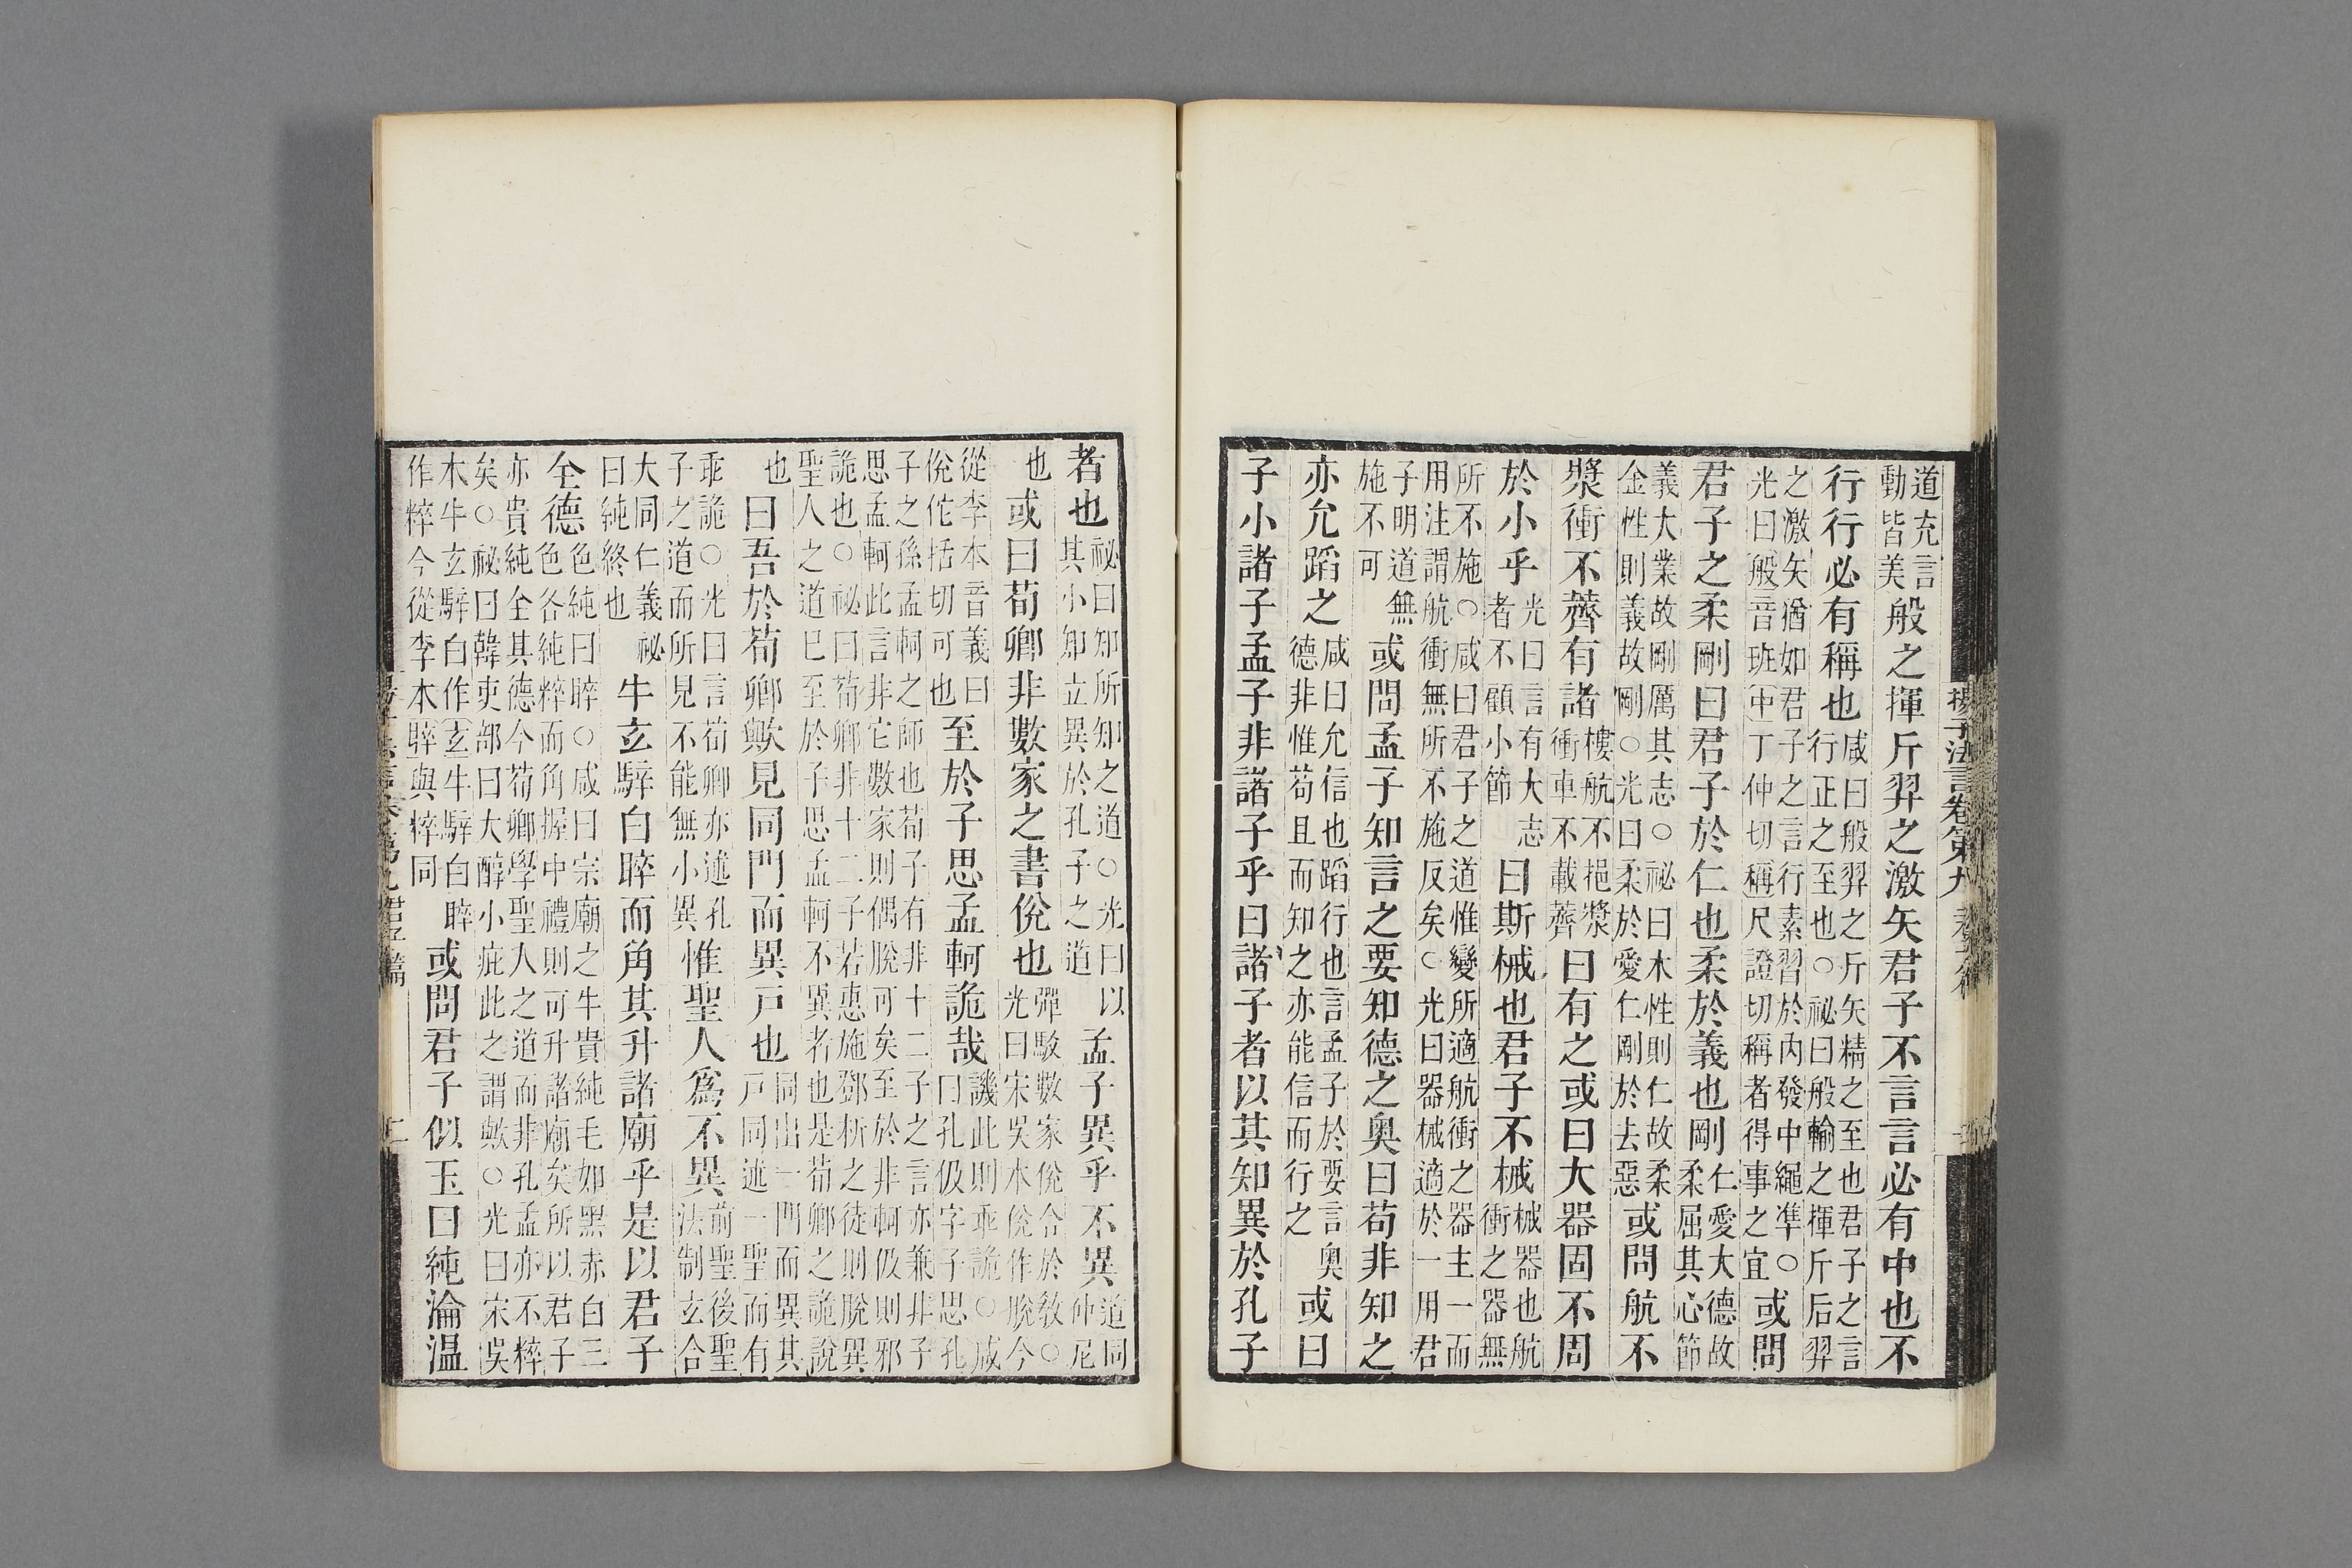 揚子法言卷第九
道充言
動皆美
般之揮斤羿之激矢君子不言言必有中也不
行行必有稱也
咸曰般羿之斤矢精之至也君子之言
行正之至也○祕曰般輸之揮斤后羿
之激矢猶如君子之言行素習於內發中繩準○
光曰般音班中丁仲切稱尺證切稱者得事之宜
或問
君子之柔剛曰君子於仁也柔於義也剛
仁愛大德故
柔屈其心節
義大業故剛厲其志○祕曰木性則仁故柔
金性則義故剛○光曰柔於愛仁剛於去惡
或問航不
漿衝不薺有諸
樓航不挹漿
衝車不載薺
曰有之或曰大器固不周
於小乎
光曰言有大志
者不顧小節
曰斯械也君子不械
械器也航
衝之器無
所不施○咸曰君子之道惟變所適航衝之器主一而
用注謂航衝無所不施反矣○光曰器械適於一用君
子明道無
施不可
或問孟子知言之要知德之奥曰苟非知之
亦允蹈之
咸曰允信也蹈行也言孟子於要言奥
德非惟苟且而知之亦能信而行之
或曰
子小諸子孟子非諸子乎曰諸子者以其知異於孔子
者也
祕曰知所知之道○光曰以
其小知立異於孔子之道
孟子異乎不異
道同
仲尼
也
或曰荀卿非數家之書侻也
彈駁數家侻合於教○
光曰宋吳本侻作脫今
從李本音義曰
侻佗括切可也
至於子思孟軻詭哉
譏此則乖詭○咸
曰孔伋字子思孔
子之孫孟軻之師也荀子有非十二子之言亦兼非子
思孟軻此言非它數家則偶脫可矣至於非軻伋則邪
詭也○祕曰荀卿非十二子若惠施鄧析之徒則脫異
聖人之道巳至於子思孟軻不異者也是荀卿之詭說
也
曰吾於荀卿歟見同門而異戶也
同出一門而異其
戶同述一聖而有
乖詭○光曰言荀卿亦述孔
子之道而所見不能無小異
惟聖人爲不異
前聖後聖
法制玄合
大同仁義祕
曰純終也
牛玄騂白睟而角其升諸廟乎是以君子
全德
色純曰睟○咸曰宗廟之牛貴純毛如黑赤白三
色各純粹而角握中禮則可升諸廟矣所以君子
亦貴純全其德今荀卿學聖人之道而非孔孟亦不粹
矣○祕曰韓吏部曰大醇小疵此之謂歟○光曰宋吳
本牛玄騂白作玄牛騂白睟
作粹今從李本睟與粹同
或問君子似玉曰純淪温